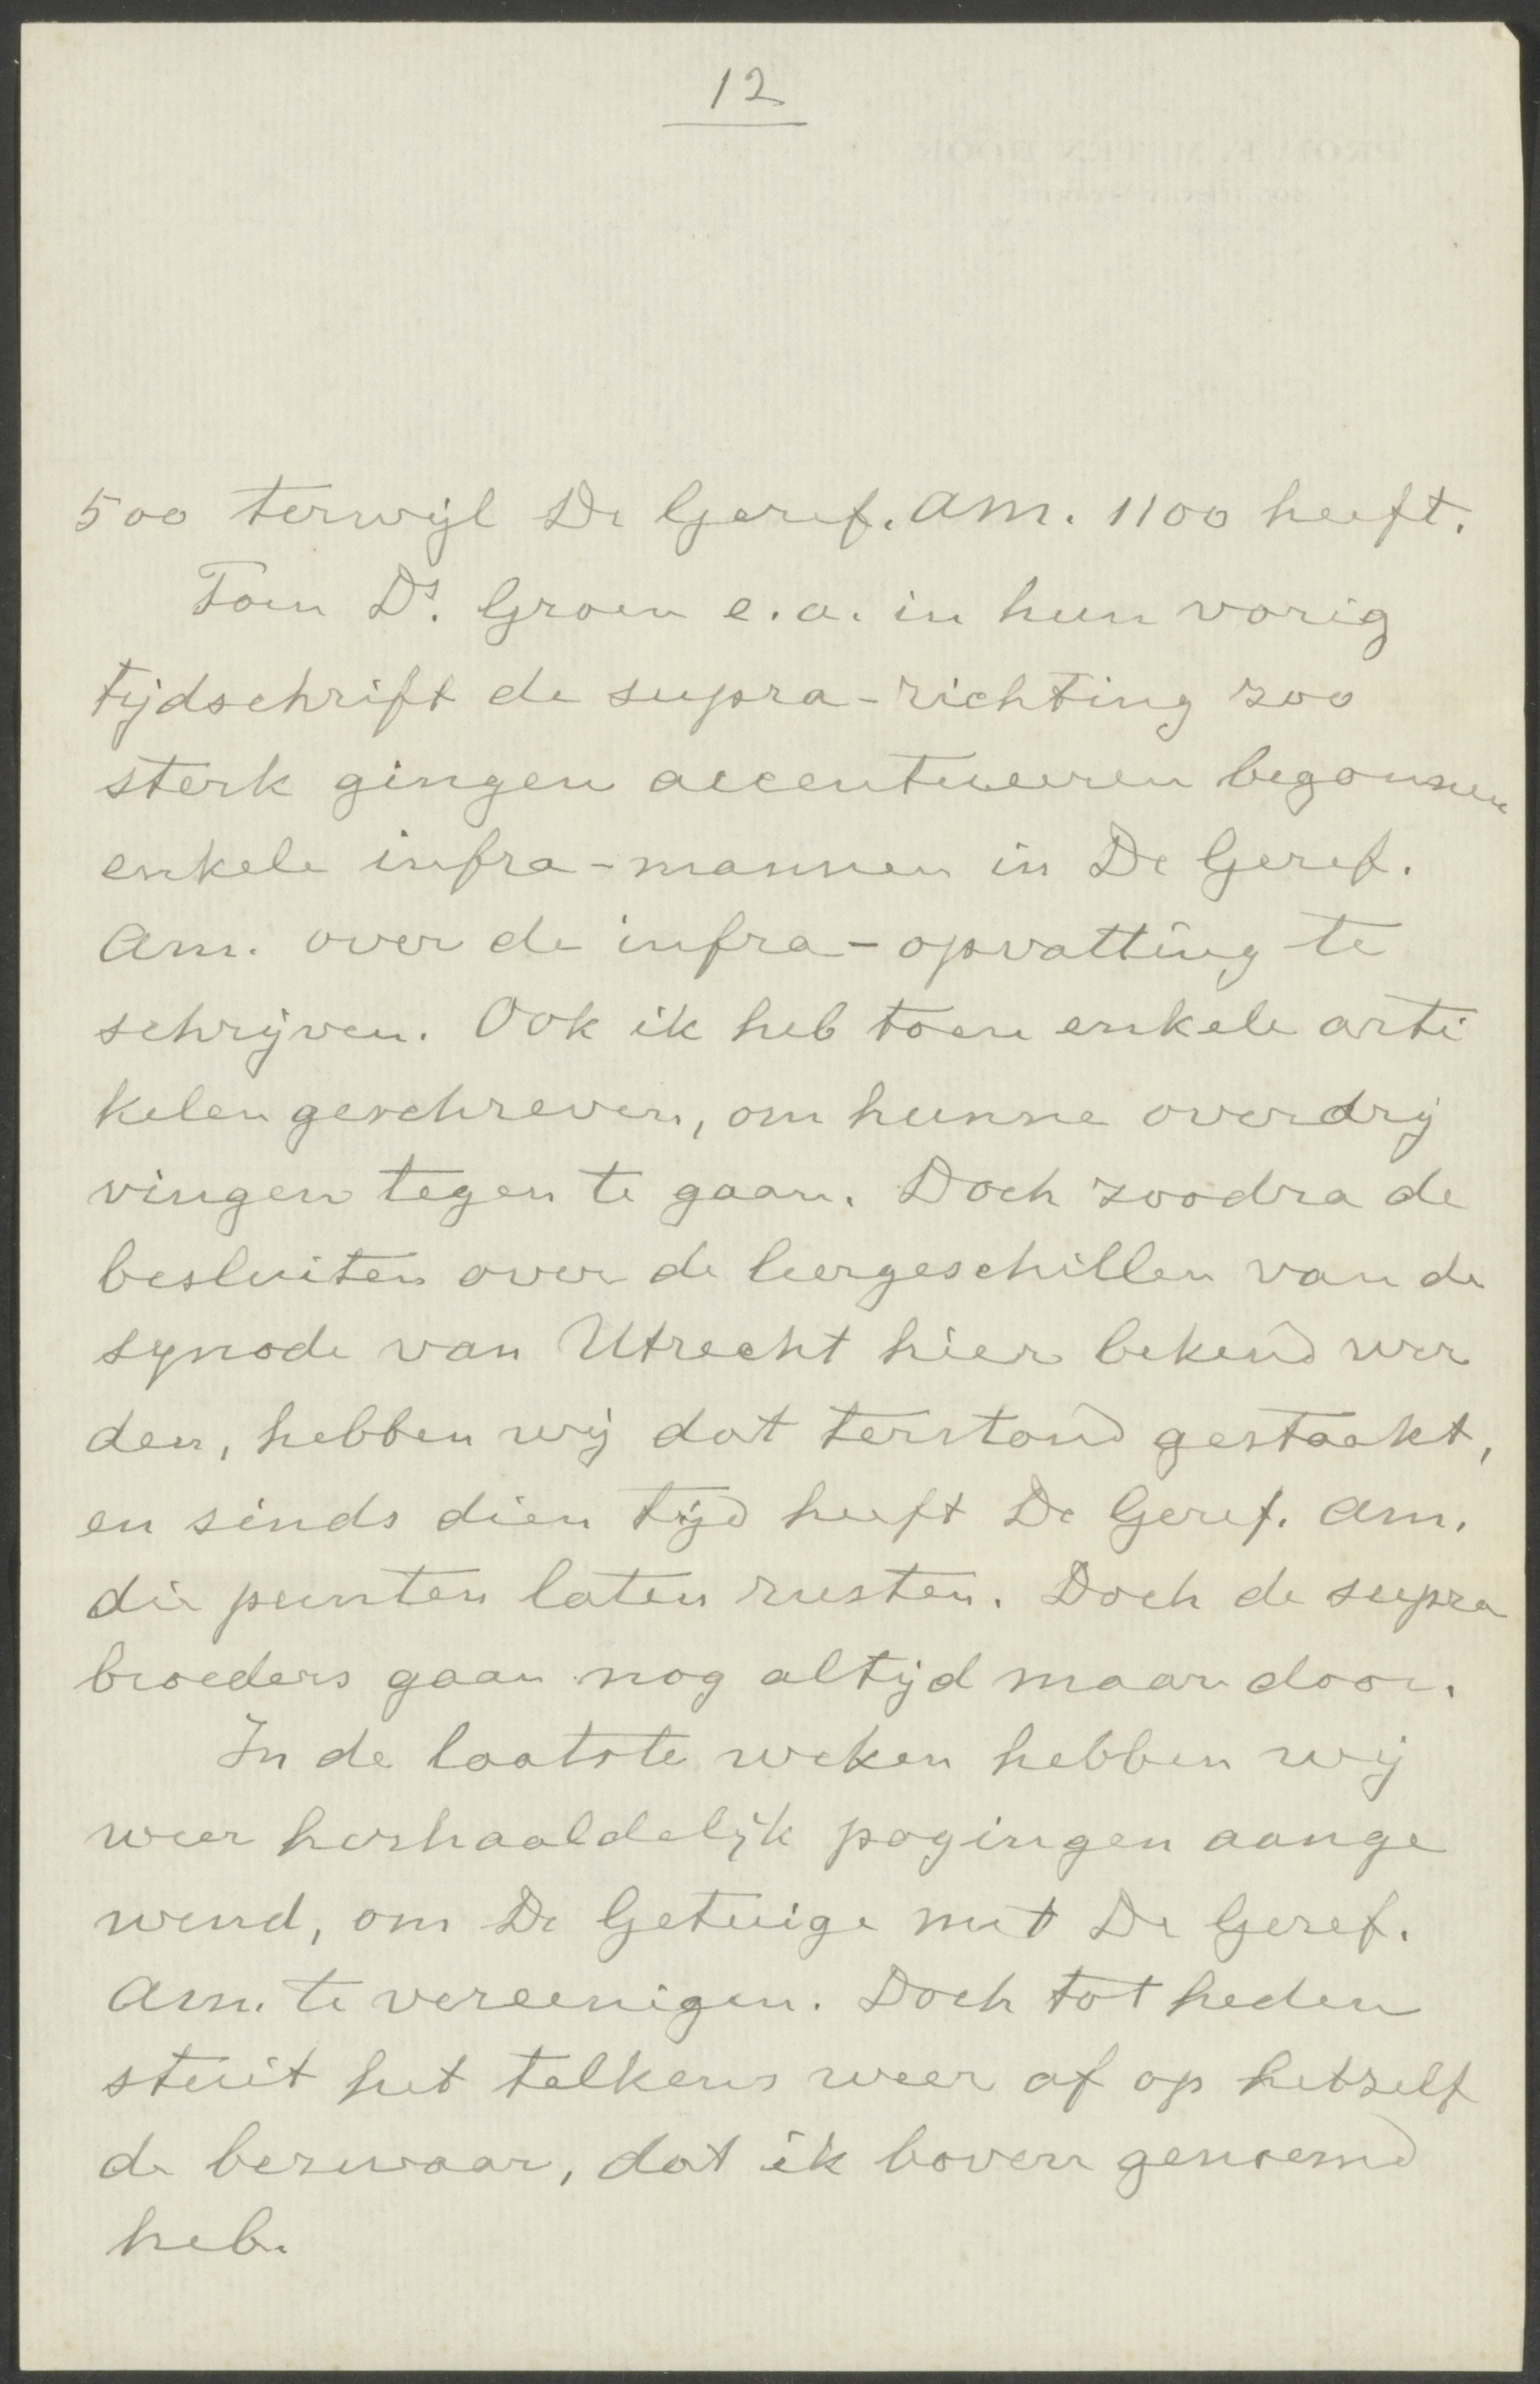 12
500 terwijl De Geref. Am. 1100 heeft.
Toen Ds. Groen e.a. in hun vorig
tijdschrift de supra-richting zoo
sterk gingen accentueeren begonnen
enkele infra-mannen in De Geref.
Am. over de infra-opvatting te
schrijven. Ook ik heb toen enkele arti
kelen geschreven, om hunne overdrij
vingen tegen te gaan. Doch zoodra de
besluiten over de leergeschillen van de
synode van Utrecht hier bekend wer
den, hebben wij dat terstond gestaakt,
en sinds dien tijd heeft De Geref. Am.
die punten laten rusten. Doch de supra
broeders gaan nog altijd maar door.
In de laatste weken hebben wij
weer herhaaldelijk pogingen aange
wend, om De Getuige met De Geref.
Am. te vereenigen. Doch tot heden
stuit het telkens weer af op hetzelf
de bezwaar, dat ik boven genoemd
heb.